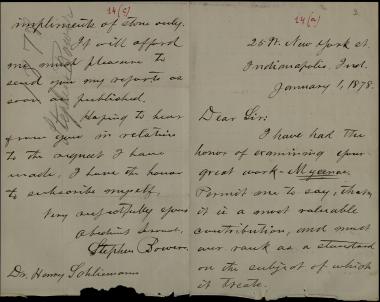 14(a)
25 N. New York st.
Indianapolis, Ind.
January 1, 1878.
Dear Sir:
I have had the
honor of examining your
great work - Mycenae.
Permit me to say, that
it is a most valuable
contribution, and must
rank as a standard
on the subject of which
it treats.
14(c)
implements of stone only.
It will afford
me much pleasure to
send you my reports as
soon as published.
Hoping to hear
from you in relation
to the request I have
made, I have the honor
to subscribe myself,
Very respectfully yours
obedient servant,
Stephen Bowers
Dr. Henry Schliemann
Stephen Bowers